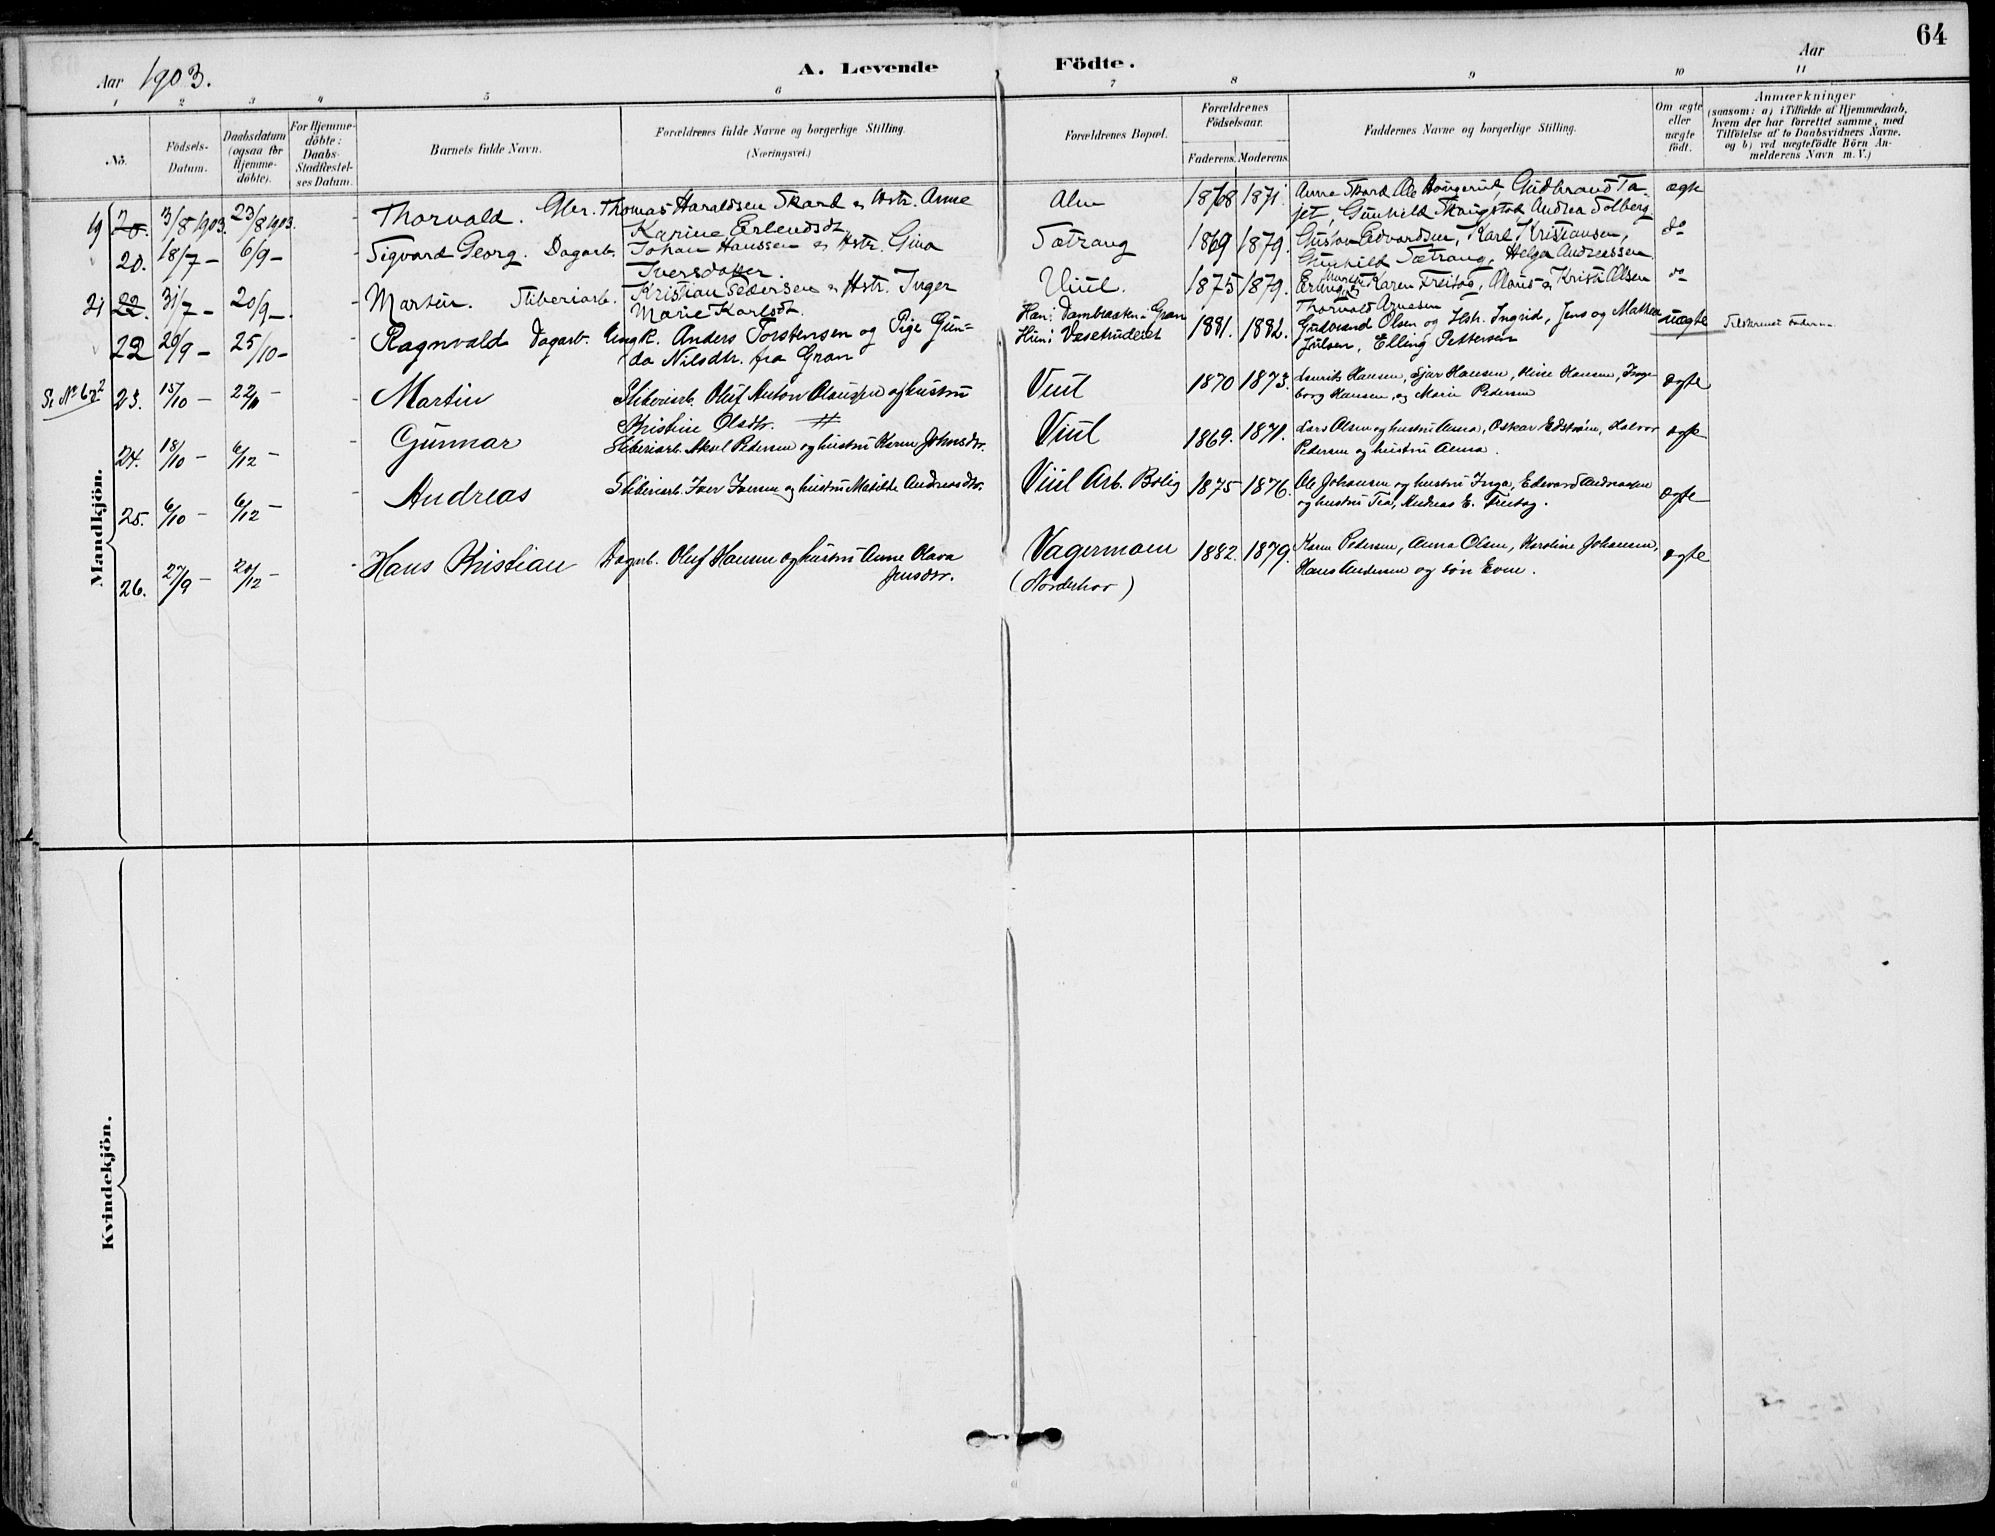 64
Aar 1903.
A. Levende Födte.
Aar
1 2 3 4 5 6 7 8 9 10 11
No.
Födsels-Datum.
Daabsdatum (ogsaa for Hjemme-döbte).
For Hjemme-döbte: Daabs-Stadfæstel-ses Datum.
Barnets fulde Navn.
Forældrenes fulde Navne og borgerlige Stilling. (Næringsvei.)
Forældrenes Bopæl.
Forældrenes Födselsaar.
Faderens. Moderens.
Faddernes Navne og borgerlige Stilling.
Om ægte eller uægte födt.
Anmærkninger
(saasom: a) i Tilfælde af Hjemmedaab,
hvem der har forrettet samme, med
Tilföielse af to Daabsvidners Navne.
og b) ved uægtefödte Börn An-
melderens Navn m. V.)
Mandkjön.
19 20. 3/8 1903. 23/8 1903. - Thorvald. Gbr. Thomas Haraldsen Skard & Hstr. Anne Alm 1868 1871. Anna Skard Ole Haugerud, Gudbrand Ta- ægte
Karine Erlendsdt. jet, Gunhild Skougstad Andrea Solberg
20. 18/7 - 6/9 - - Sigvard Georg. Dagarb. Johan Hanssen & Hstr. Gina Sætrang 1869 1879. Gustav Edvardsen, Karl Kristiansen, do
Iversdatter. Gunhild Sætrang, Helga Andreassen.
21 22. 31/7 - 20/9 -. - Martin. Sliberiarb. Kristian Pedersen & Hstr. Inger Viul. 1875 1879. Erling & Karen Freitag, Olaus & Kristi Olsen do
Marie Karlsdt. Thorvald Arnesen
22 26/9 - 25/10 - Ragnvald Dagarb. Ungk. Anders Torstensen og Pige Gun- Han: Dambraaten - Gran 1881. 1882. Gudbrand Olsen og Hstr. Ingrid, Jens og Mathea uægte
da Nilsdtr. fra Gran Hun: Væseterudeiet Julsen, Elling Pettersen
23. 15/10 - 22/11 - - Martin Sliberiarb. Oluf Anton Olaussen og hustru Viul 1870 1873. Henrik Hansen, Sjur Hansen, Oline Hansen, Inge- ægte
Kristine Olsdtr. borg Hansen, og Marie Pedersen
24. 18/10 - 6/12 - - Gunnar Sliberiarb. Aksel Pedersen og hustru Karen Johnsdtr. Viul 1869. 1871. Lars Olsen og hustru Anna, Oskar Edström, Halvor ægte
Pedersen og hustru Anna.
25. 6/10 - 6/12 - - Andreas Sliberiarb. Iver Iversen og hustru Matilde Andreasdtr. Viul Arb. Bolig 1875 1876. Ole Johansen og hustru Inga, Edevard Andreassen ægte
og hustru Tea, Andreas E. Freitag.
26. 27/9 - 20/12 - - Hans Kristian Dagarb. Oluf Hansen og hustru Anne Olava Vagermoen 1882. 1879. Karen Pedersen, Anna Olsen, Karoline Johansen, ægte
Jensdtr. (Norderhov) Hans Andersen og sön Even.
Kvindekjön.